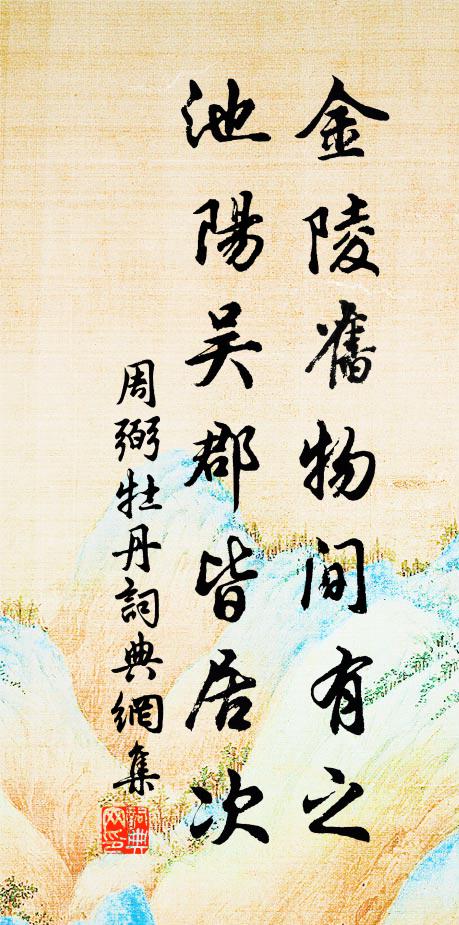 金陵舊物間有之
池陽吴郡皆居次
周弼牡丹詞典網集
詞典
网印